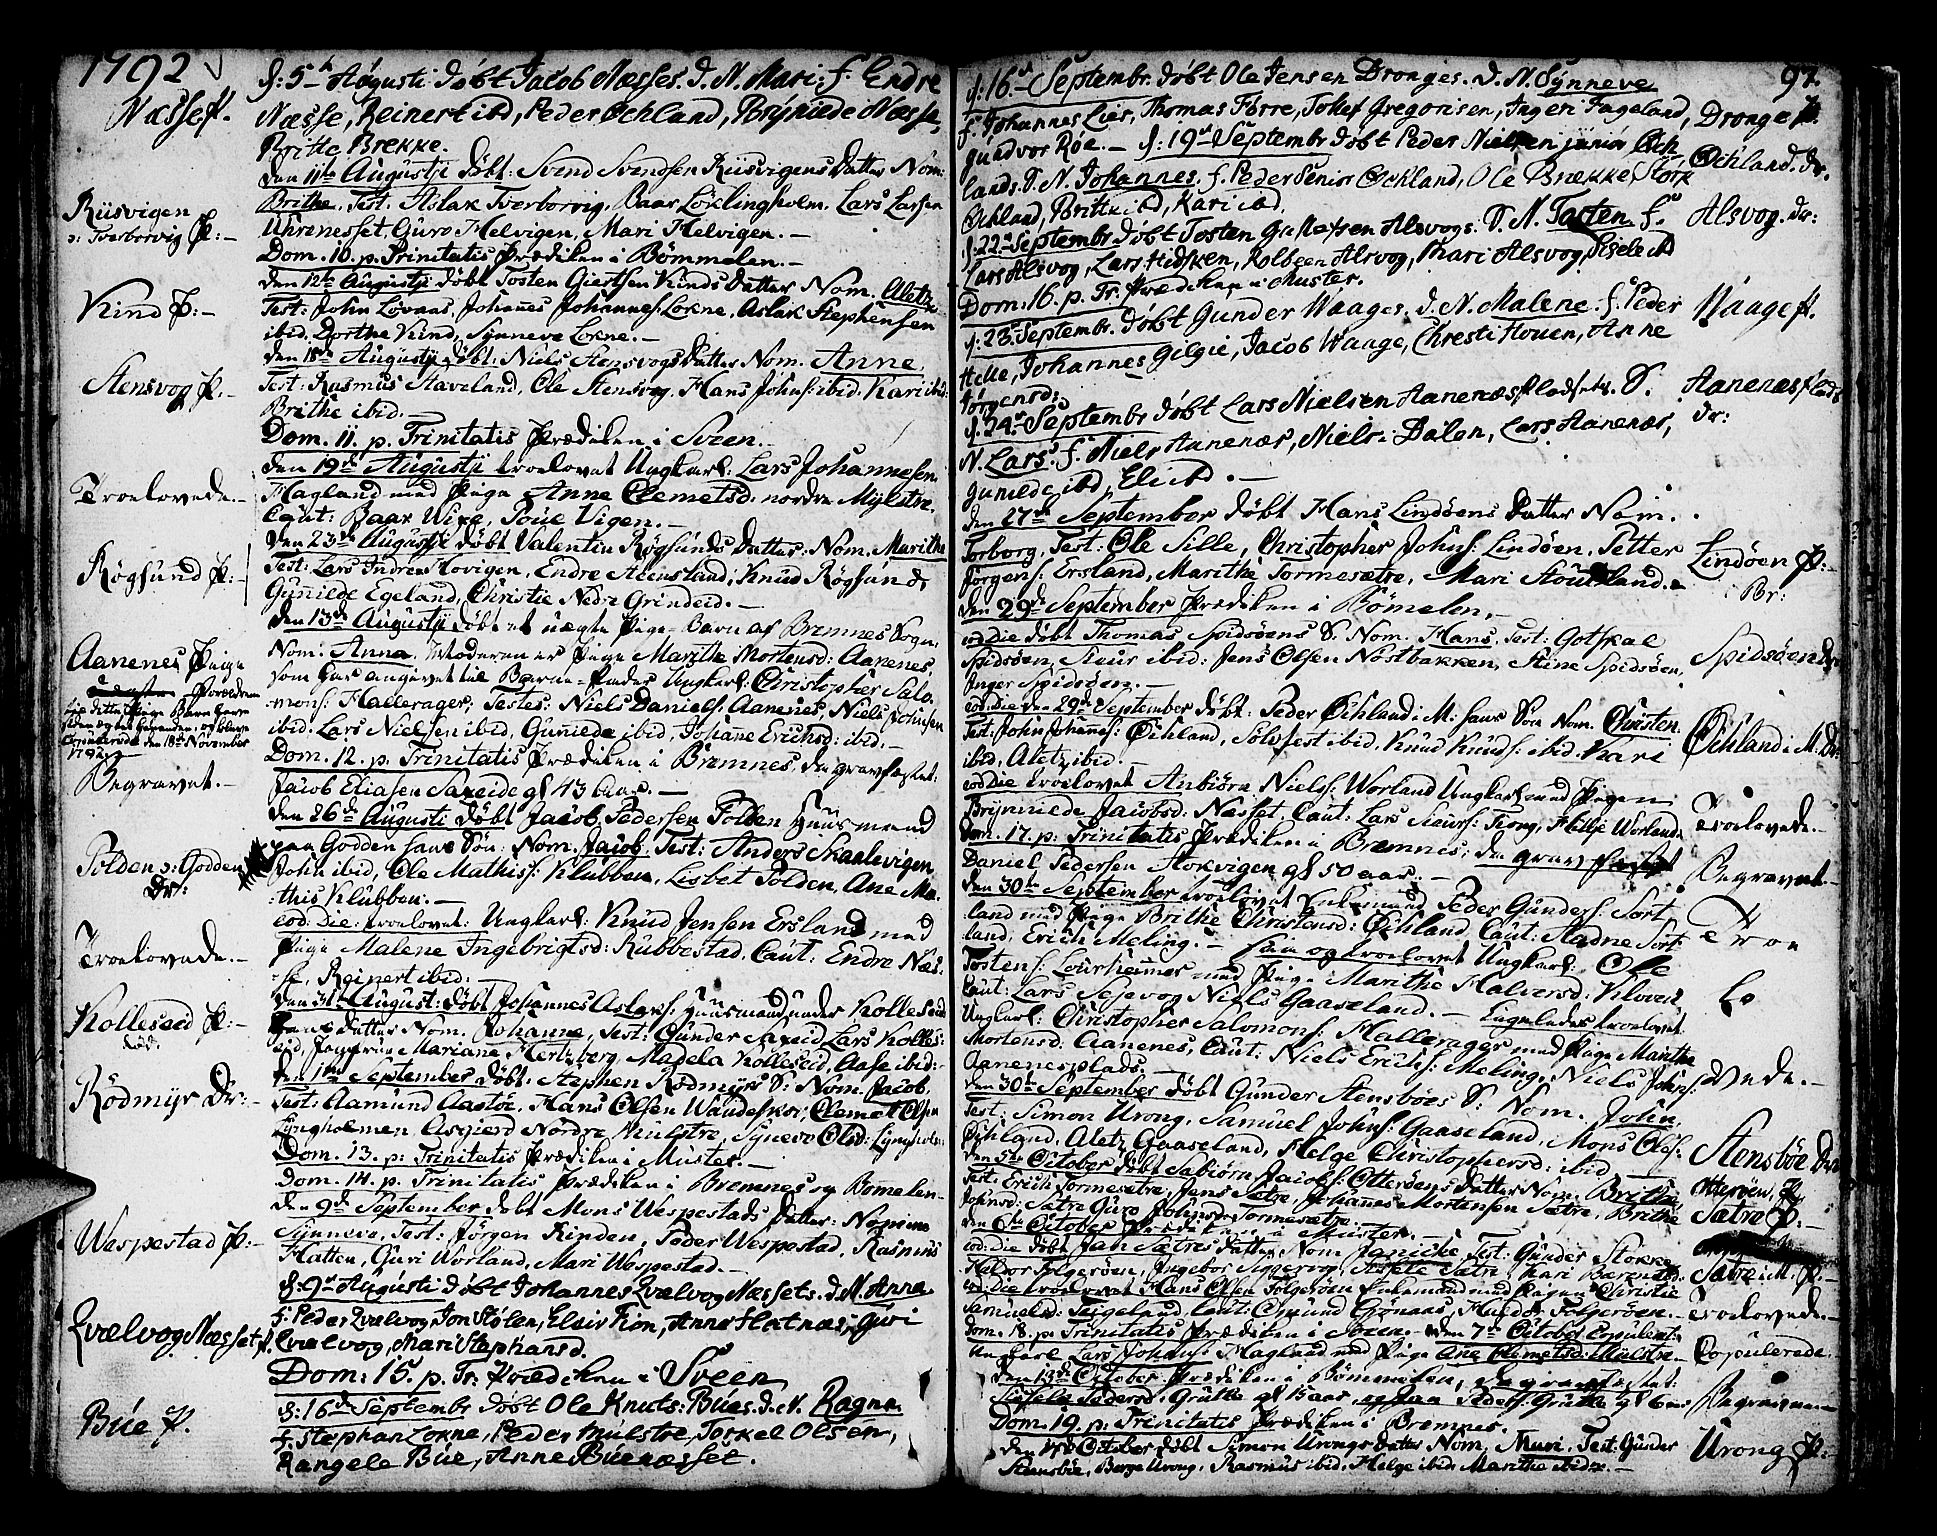 1792
Næsse p.
d: 5te Augusti døbt Jacob Næsses. d. N. Mari: f. Endre
Næsse, Reinert ibd, Peder Øchland, Brynilde Næsse,
Britte Brekke.
Riisvigen
o: Tverborvig P:
den 11te Augustij døbt: Svend Svendsen Riisvigens Datter Nom:
Brithe, Test: Aslak Tverborvig, Baar Løklingholm, Lars Larsen
Uhrenesset Guro Helvigen, Mari Helvigen.
Dom. 10. p. Trinitatis Prædiken i Bømmelen.
Kind P:
den 12te Augustij døbt Tosten Giertsen Kinds Datter Nom.
Test: John Lovaas, Johanes Johannes: Lokne, Aslak Stephensen
ibid, Dorthe Kind, Synneve Lokne.
Stensvog P.
den 18de Augustij døbt: Niels Stensvogs Datter Nom. Anne
Test: Rasmus Staveland, Ole Stensvog, Hans Johns: ibid, Kari ibid:
Brithe ibid.
Dom. 11. p. Trinitatis Prædiken i Sveen.
Troelovede.
den 19de Augustij troelovet Ungkarl: Lars Johannesen
Hagland med Pige Anne Clemetsd: nordre Mylstre,
Caut: Baar Wixe, Poul Vigen.
Røgsund P:
den 23de Augustij døbt Valentin Røgsunds Datter: Nom. Marithe
Test: Lars Indre Hovigen, Endre Steensland, Knud Røgsund
Gunilde Egeland, Christie Nedre Grindeid.
Aanenes Pige
den 13de Augustij døbt et uægte Pige-Barn af Bremnes Sogn,
Nom. Anna. Moderen er Pige Marithe Mortensd: Aanenes,
som har angivet til Barne-Fader Ungkarl: Christopher Salo-
mons: Hallerager, Testes: Niels Daniels: Aanenes, Niels Johnsen
ibid: Lars Nielsen ibid, Gunilde ibid, Johane Erichsd: ibid.
Dom. 12. p. Trinitatis Prædiken i Bremnes, da gravfæstet:
Begravet.
Jacob Eliasen Saxeide gl 43 aar.
Folden o: Godden
Dr:
den 26de Augusti døbt Jacob Pedersen Folden Huusmand
paa Godden hans Søn: Nom. Jacob. Test: Anders Skaalevigen,
John ibid, Ole Mathis: Klubben, Lisbet Folden, Ane Ma-
this Klubben.
Troelovede.
eod: die: troelovet: Ungkarl: Knud Jensen Ersland med
Pige Malene Ingebrigtsd: Rubbestad, Caut: Endre Næs-
se, Reinert ibid:
Kolleseid P:
den 31te August: døbt Johannes Aslaks: Huusmand under Kolleseid
hans Datter Nom. Johanne, Test: Gunder Saxeid Lars Kolles-
eid, Jomfrue Mariane Hertzberg, Madela Kolleseid, Aase ibid:
Rødmyr Dr:
den 1te September døbt: Stephen Rødmyrs S: Nom. Jacob
Test: Aamund Aastøe, Hans Olsen Wandeskor, Clemet Olsen
Lyngholmen, Asgierd Nordre Mulstre, Synneve Olsd: Lyngholm:
Dom. 13. p: Trinitatis Prædiken i Muster.
Dom. 14. p. Trinitatis Prædiken i Bremnes og Bømelen.
Wespestad P:
den 9de September døbt Mons Wespestads Datter: Nomine
Synneva, Test: Jørgen Rinden, Peder Wespestad, Rasmus
Hatten, Guri Worland, Mari Wespestad.
Qvalvog Næsset p.
d: 9de Augusti døbt Johannes Qvalvog Næssets. d. N. Anna
f: Peder Qvalvog, Jon Stølen, Elsir Fion, Anna Hatnes, Guri
Qvalvog, Mari Stephansd.
Dom: 15. p. Tr. Prædiken i Sveen
Búe p.
d: 16de Septembr døbt Ole Knuts: Búes. d. N. Ragna
f. Stephan Lokne, Peder Mulstre, Torkel Olsen,
Rangele Búe, Anne Búenæsset.
97.
d: 16de Septembr. døbt Ole Jensen Dronges. d. N. Synneve
f. Johannes Lier, Thomas Førre, Tollef Gregorisen, Ingeri Fageland,
Gundvor Røe. d: 19de Septembr døbt Peder Nielsen junior Øch-
Dronge p.
lands. S. N. Johannes. f. Peder Senior Øchland, Ole Brække, Stork
Øchland, Britte ibd, Kari ibd.
Øchland. dr.
d: 22de Septembr døbt Tosten Gulleksen Alsvogs: S. N. Tosten f.
Lars Alsvog, Lars Hidsken, Kolbeen Alsvog, Mari Alsvog, Sisele ibd
Alsvog. dr:
Dom: 16. p. Tr. Prædiken i Muster.
d: 23de Septembr. døbt Gunder Waages. d. N. Malene. f. Peder
Helle, Johannes Gilgie, Jacob Waage, Christi Houen, Anne
Jørgensd:
Waage p.
d: 24de Septembr døbt Lars Nielsen Aanenæs Pladsets. S.
N. Lars: f. Niels Aanenæs, Niels i Dalen, Lars Aanenæs,
Gunilde ibd, Eli ibd.
Aanenæs Plads
dr:
den 27de September døbt Hans Lindøens Datter Nom.
Torborg, Test: Ole Sille, Christopher Johns: Lindøen, Petter
Jørgens: Ersland, Marithe Tormesætre, Mari
Lindøen P:
den 29de September Prædiken i Bømelen.
eod die døbt Thomas Spidsøens S. Nom. Hans, Test: Gotskal
Spidsøen, Siur ibid: Jens Olsen Nostbakken, Stine Spidsøen,
Inger Spidsøen.
Spidsøen dr
eod: die den 29de September døbt: Peder Øchland i M: hans Søn Nom. Christen
Test: John Johannes: Øchland, Solvfest ibid, Knud Knuds: ibid, Kari
ibid, Aletz ibid.
Øchland i M: Dr:
eod die troelovet Anbiørn Niels: Worland Ungkarl med Pigen
Brynnilde Jacobsd: Næsset, Caut: Lars Siurs: Tiong, Heltje Worland.
Troelovede.
Dom. 17. p: Trinitatis Prædiken i Bremnes, da gravfæstet
Daniel Pedersen Stokvigen gl 50 aar.
Begravet.
den 30te September troelovet Enkemand Peder Gunders: Sort-
land med Pige Brithe Christensd: Øchland, Caut: Aadne Sort-
land, Erich Meling. Saa og troelovet Ungkarl: Ole
Tostens: Løvreheimer med Pige Marithe Halversd: Kloven
Caut: Lars Sejevog Niels Gaaseland. Ligeledes troelovet
Ungkarl: Christopher Salomons: Hallerager med Pige Marithe
Mortensd: Aanenes, Caut: Niels Erichs: Meling, Niels Johns:
Aanenesplads.
Troe
lo
vede.
den 30te September døbt Gunder Stensbøes S: Nom. John,
Test: Simon Urong, Samuel Johns: Gaaseland, Mons Oles:
Øchland, Aletz Gaaseland, Helge Christophersd: ibid
Stensbøe Dr:
den 5te October døbt Sabiørn Jacobs: Otterøens Datter Nom. Brithe,
Test: Erich Tormesætre, Jens Sætre, Johannes Mortensen Sætre, Brithe
Johnsd: Sætre Guro Johnsd: Tormesætre.
Otterøen P.
Sætre P:
den 6te October Prædiken i Muster.
eod: die døbt Jan Sætres Datter Nom Janiche, Test: Gunder Stokke
Halvor Folgerøen, Ingebor Siggervog, Sætre, Kari Barensd:
Sætre i M: P.
eod: die troelovet Hans Olsen Folgerøen Enkemand med Pigen Christie
Samuelsd: Teigeland, Caut: Omund Giønnes, Folgerøen.
Troelovede.
Dom. 18. p. Trinitatis Prædiken i Sveen. den 7de October Copuleret
Ungkarl Lars Johans: Hagland med Pige Ane Clemetsd: Mulstre.
Copulerede.
den 13de October Prædiken i Bømmelen,
Sissela Pedersd: Grutle gl 15 aar, og Jan Peders: Grutle gl 6
Begravne
Dom. 19. p. Trinitatis Prædiken i Bremnes.
den October døbt Simon Urongs Datter Nom. Mari. Test: Gunder
Stensbøe, Børge Urong, Rasmus ibid. Helge ibid. Marithe ibid.
Urong P: